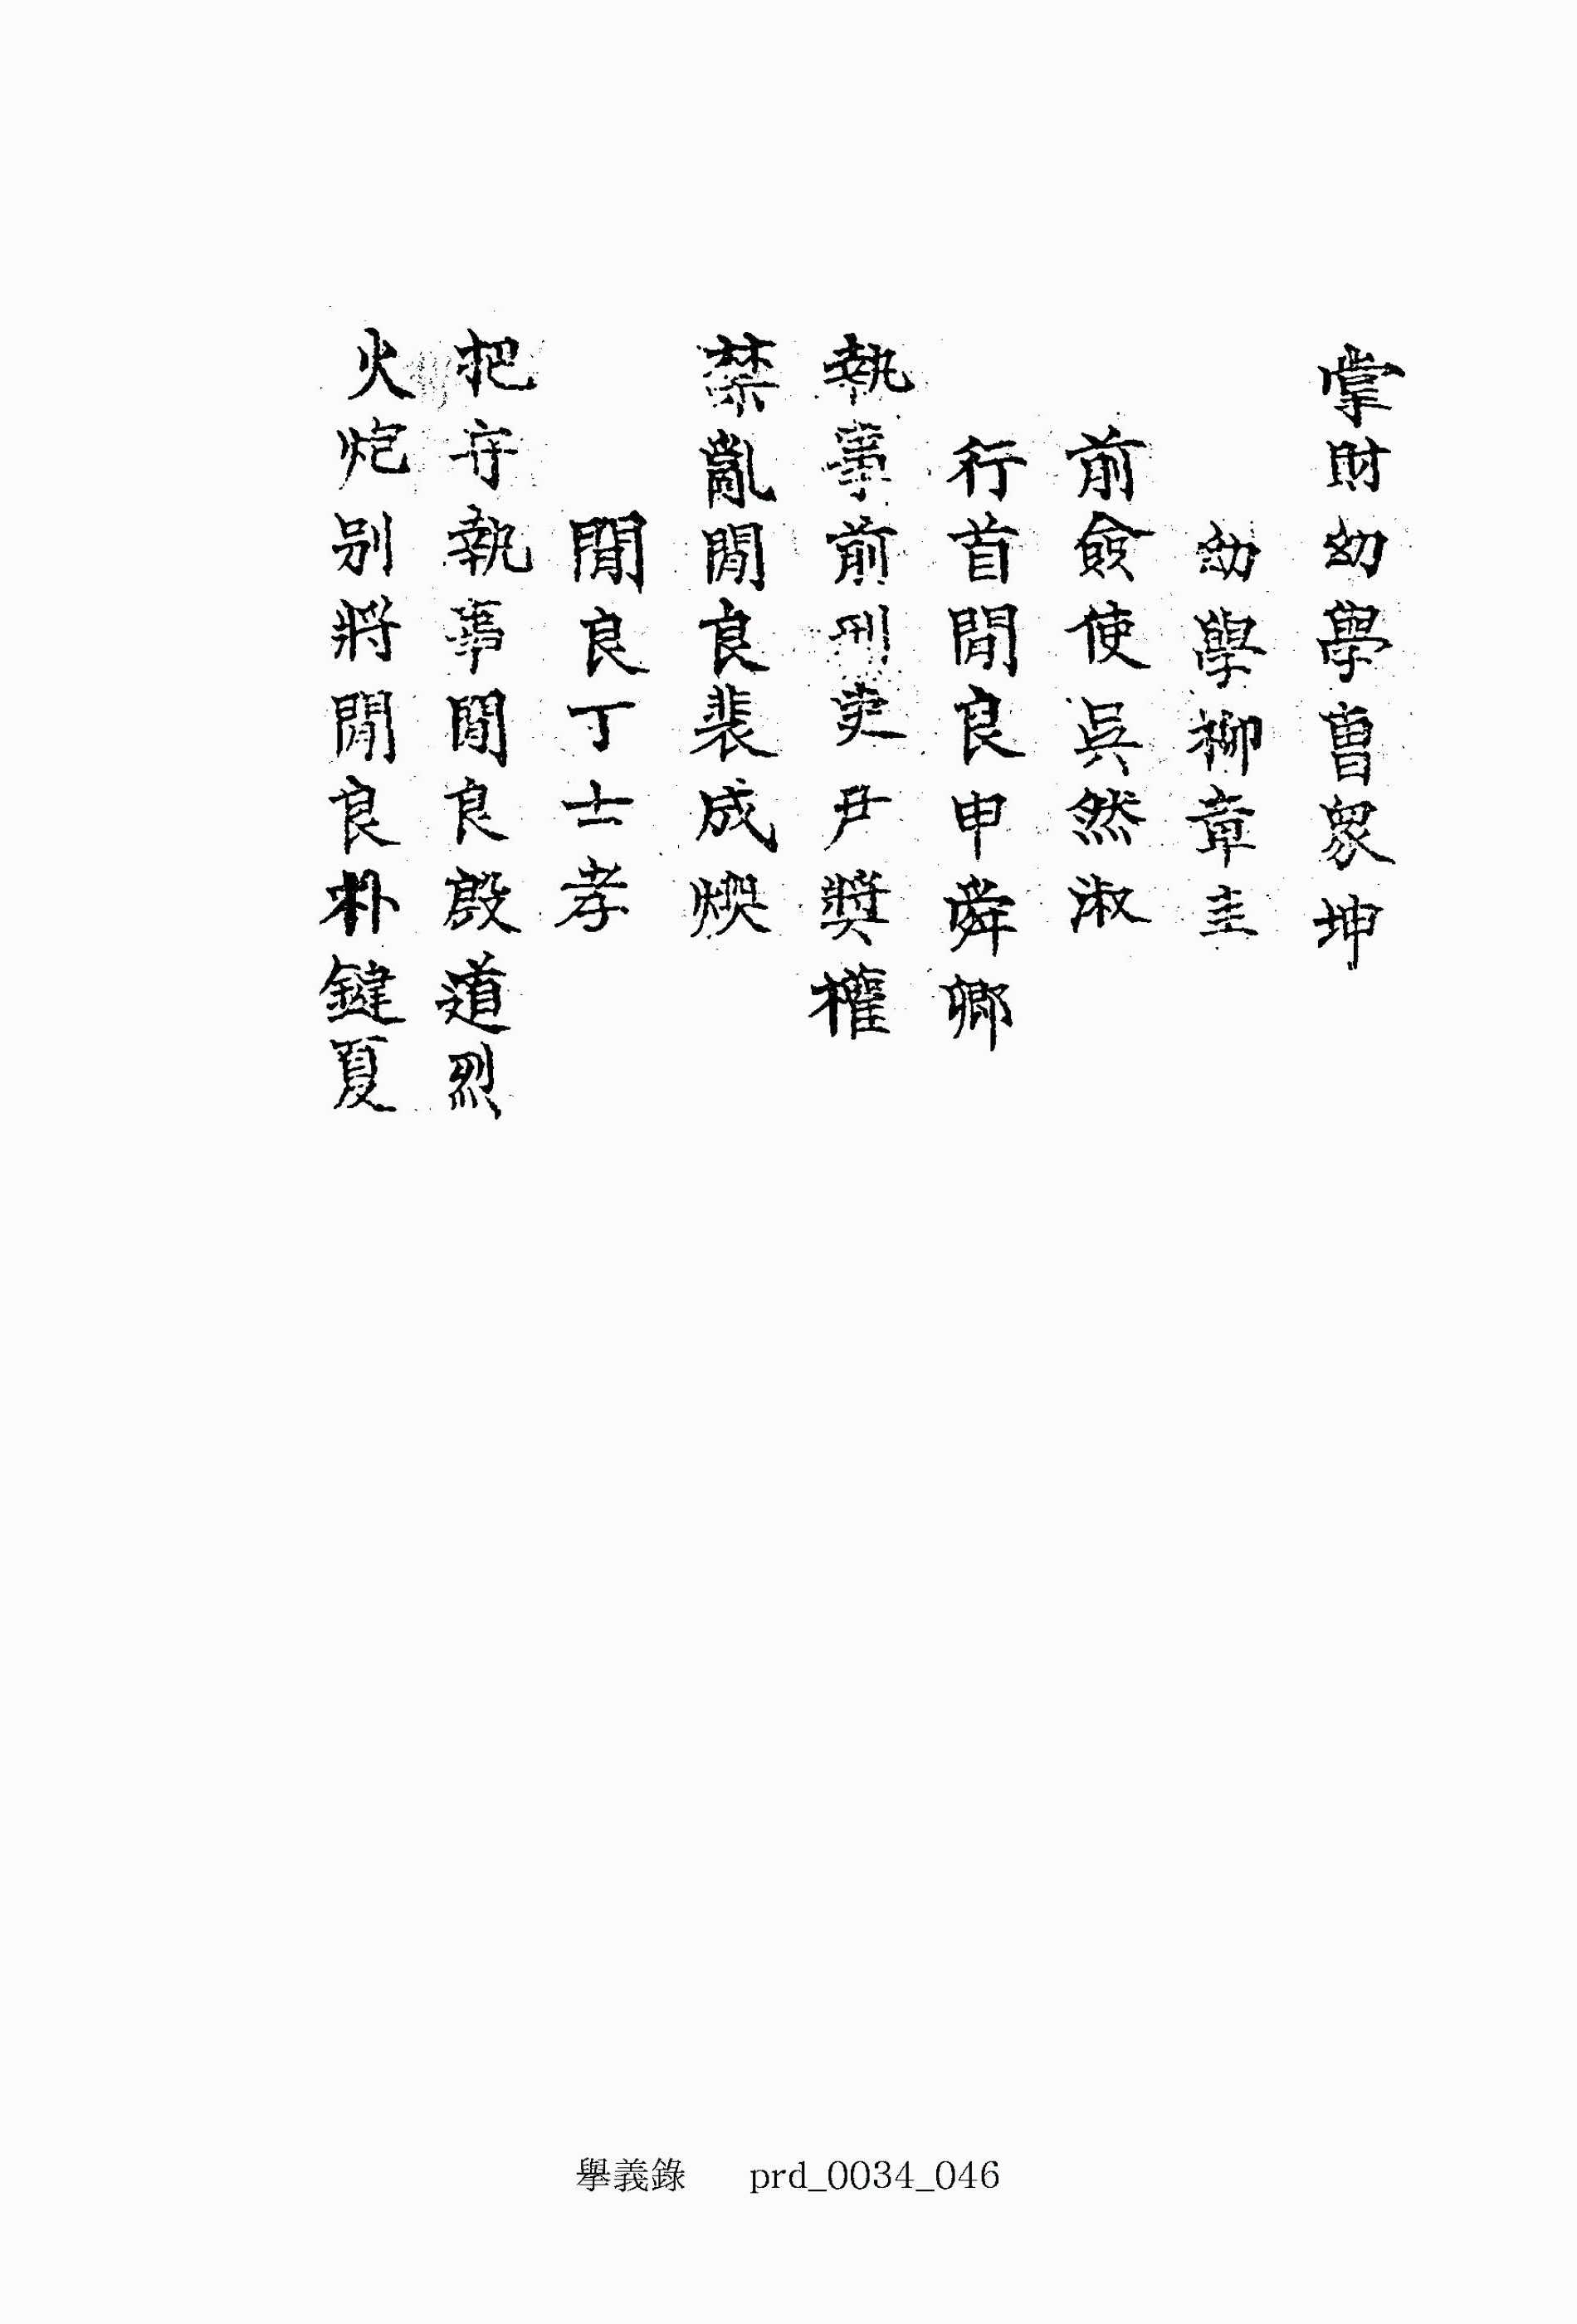 掌財幼學曺衆坤
幼學柳章圭
前僉使吳然淑
行首閒良申舜卿
執事前刑吏尹奬權
禁亂閒良裴成煥
閒良丁士孝
把守執事閒良殷道烈
火炮別將閒良朴鍵夏
擧義錄 prd_0034_046